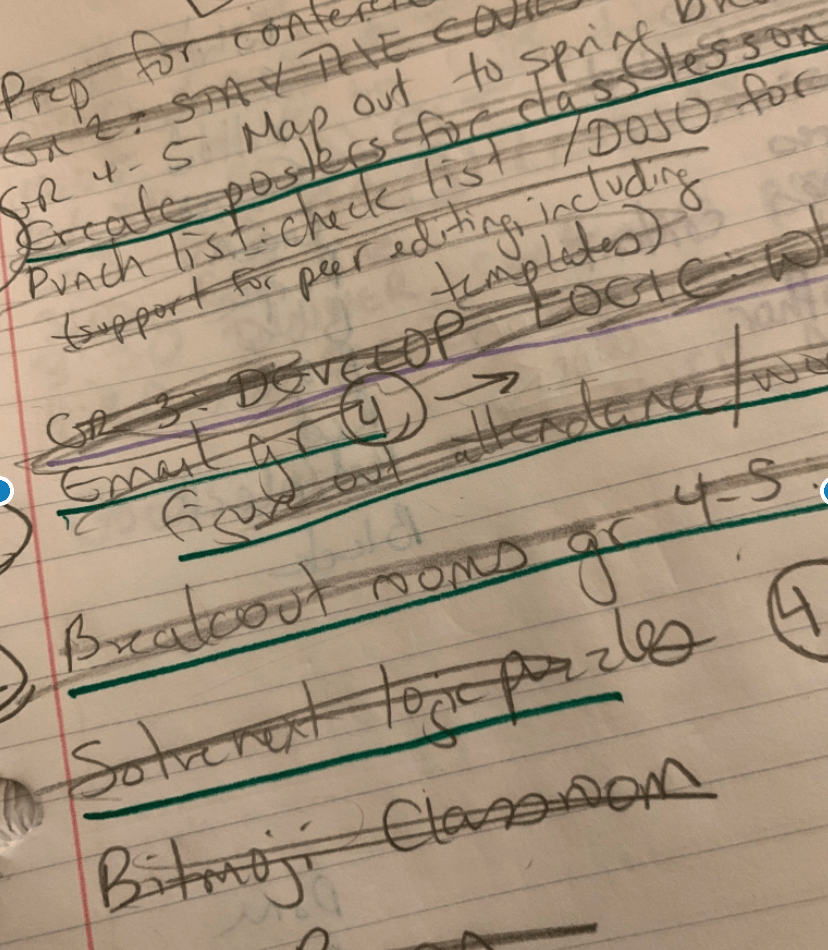 Prep for conferen
Gr 2:
GR 4-5 Map out to spring
Create posters for class lesson
Punch list: check list /DOJO for
(support for peer editing, including
templates)
Gr 3: DEVELOP LOGIC:
Email gr 4 →
figure out attendance/
Breakout rooms gr 4-5
4
Solve next logic puzzles
Bitmoji Classroom